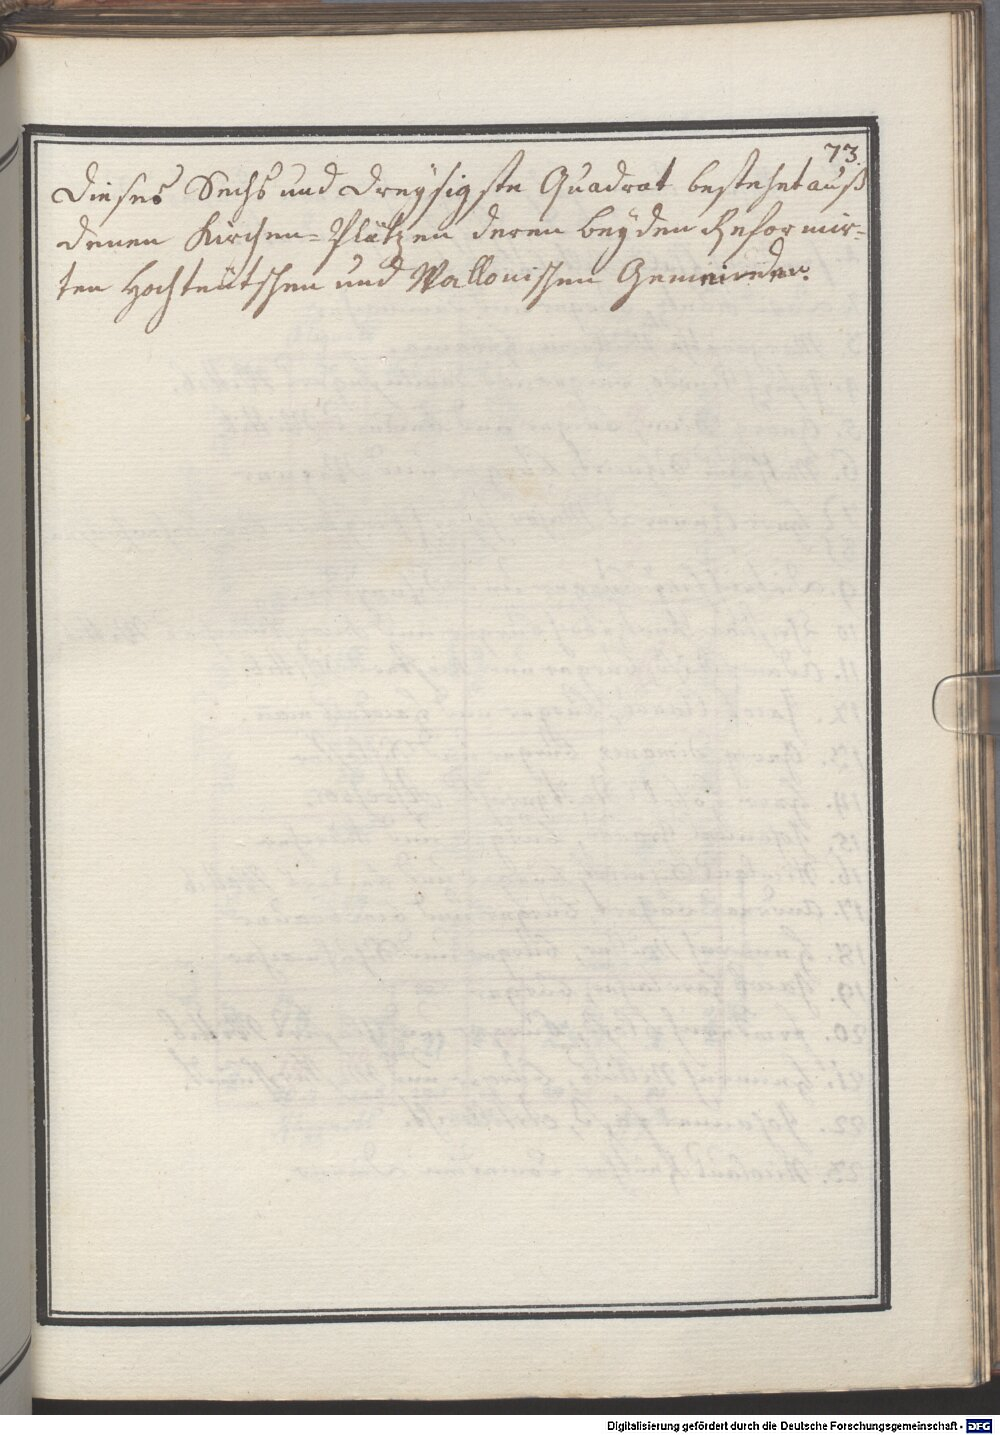 73.
Dieses Sechs und Dreysigste Quadrat bestehet auß
denen Kirchen-Plätzen deren beyden Reformir-
ten Hochteütschen und Wallonischen Gemeinden.
Digitalisierung gefördert durch die Deutsche Forschungsgemeinschaft - DFG